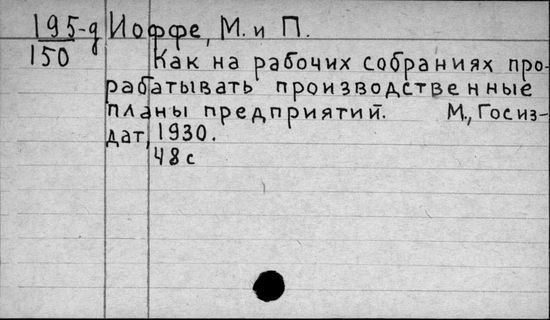 195-д Иоффе, М. и П.
150 Как на рабочих собраниях про-
рабатывать производственные
планы предприятий. М., Госиз-
дат, 1930.
48 с